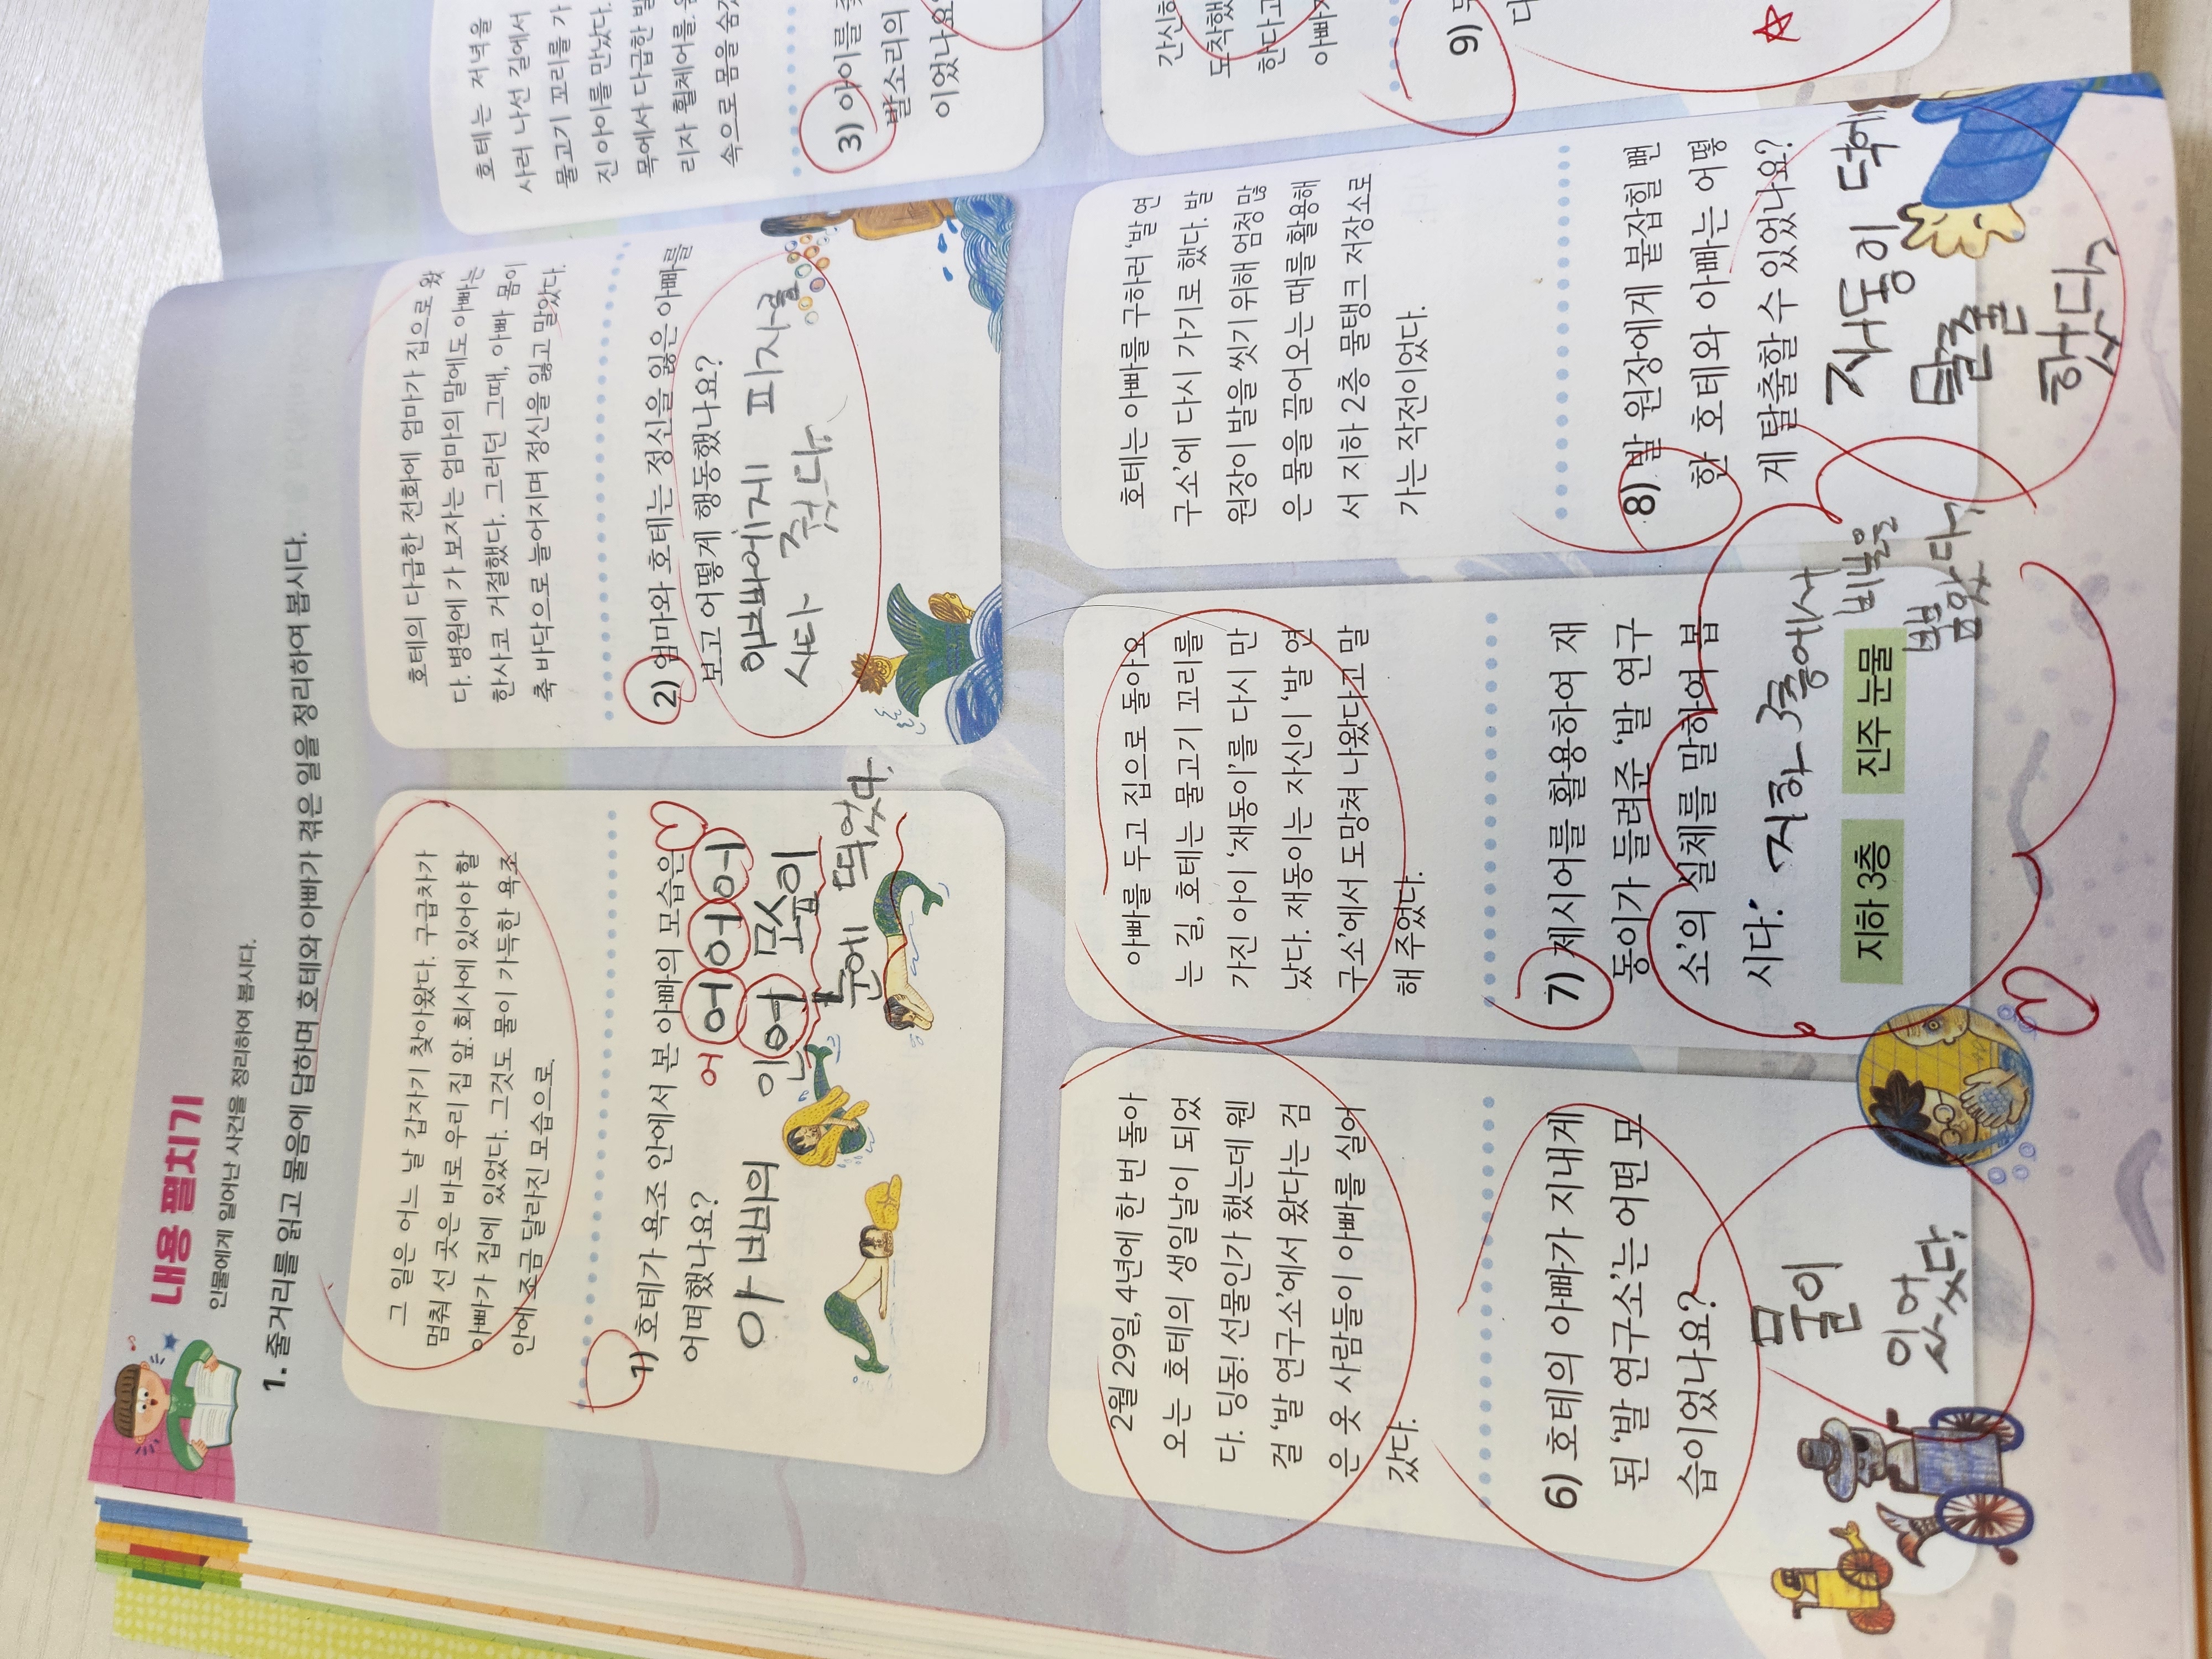 내용 펼치기
인물에게 일어난 사건을 정리하여 봅시다.
1. 줄거리를 읽고 물음에 답하며 호테와 아빠가 겪은 일을 정리하여 봅시다.
그 일은 어느 날 갑자기 찾아왔다. 구급차가
멈춰 선 곳은 바로 우리 집 앞. 회사에 있어야 할
아빠가 집에 있었다. 그것도 물이 가득한 욕조
안에 조금 달라진 모습으로.
1) 호테가 욕조 안에서 본 아빠의 모습은
어떠했나요?
어 어 어 어
아빠의 인어 모습이
눈에 띄었다.
호테의 다급한 전화에 엄마가 집으로 왔
다. 병원에 가 보자는 엄마의 말에도 아빠는
한사코 거절했다. 그러던 그때, 아빠 몸이
축 바닥으로 늘어지며 정신을 잃고 말았다.
2) 엄마와 호테는 정신을 잃은 아빠를
보고 어떻게 행동했나요?
아빠에게 피자를
사다 줬다.
호테는 저녁을
사러 나선 길에서
물고기 꼬리를 가
진 아이를 만났다.
목에서 다급한 발
리자 휠체어를
속으로 몸을 숨
3) 아이를
발소리의
이었나요
2월 29일, 4년에 한 번 돌아
오는 호테의 생일날이 되었
다. 딩동! 선물인가 했는데 웬
걸 ‘발 연구소’에서 왔다는 검
은 옷 사람들이 아빠를 실어
갔다.
6) 호테의 아빠가 지내게
된 ‘발 연구소’는 어떤 모
습이었나요?
물이
있었다.
아빠를 두고 집으로 돌아오
는 길, 호테는 물고기 꼬리를
가진 아이 ‘재동이’를 다시 만
났다. 재동이는 자신이 ‘발 연
구소’에서 도망쳐 나왔다고 말
해 주었다.
7) 제시어를 활용하여 재
동이가 들려준 ‘발 연구
소’의 실체를 말하여 봅
시다.
지하 3층에서
비늘을
뽑았다.
지하 3층
진주 눈물
호테는 아빠를 구하러 ‘발 연
구소’에 다시 가기로 했다. 발
원장이 발을 씻기 위해 엄청 많
은 물을 끌어오는 때를 활용해
서 지하 2층 물탱크 저장소로
가는 작전이었다.
8) 발 원장에게 붙잡힐 뻔
한 호테와 아빠는 어떻
게 탈출할 수 있었나요?
재동이 덕에
탈출
했다.
간신히
도착했
한다고
아빠
9)
다